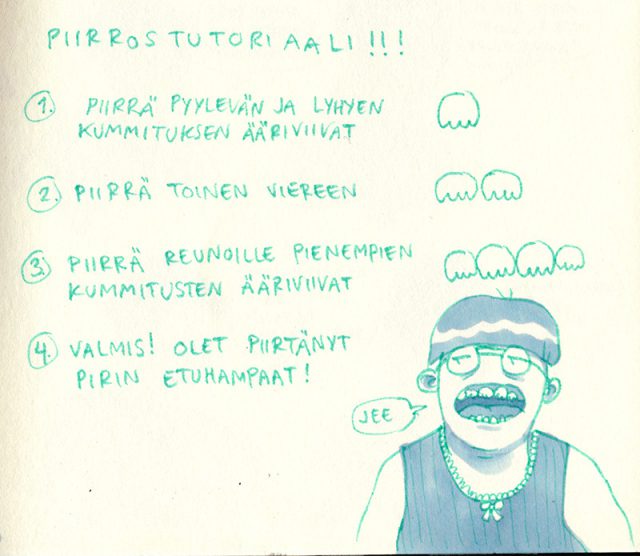 PIIRROSTUTORIAALI!!!
1. PIIRRÄ PYYLEVÄN JA LYHYEN
KUMMITUKSEN ÄÄRIVIIVAT
2. PIIRRÄ TOINEN VIEREEN
3. PIIRRÄ REUNOILLE PIENEMPIEN
KUMMITUSTEN ÄÄRIVIIVAT
4. VALMIS! OLET PIIRTÄNYT
PIRIN ETUHAMPAAT!
JEE